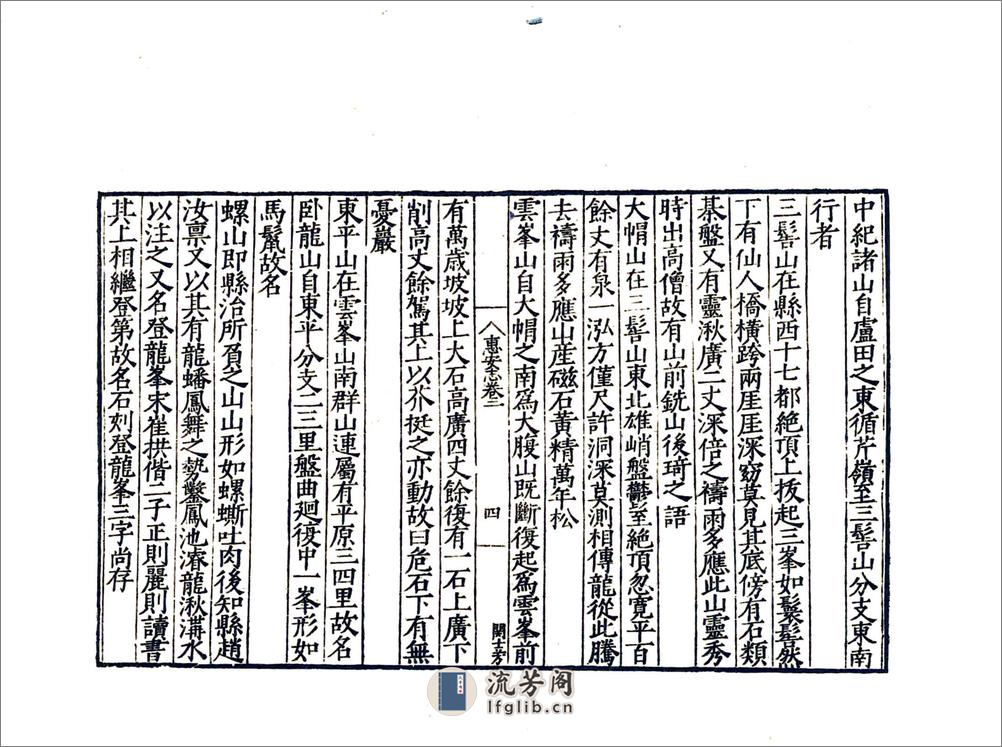 中紀諸山自盧田之東循芹嶺至三髻山分支東南
行者
三髻山在縣西十七都絶頂上拔起三峯如鬟髻然
下有仙人橋橫跨兩厓厓深窈莫見其底傍有石類
棊盤又有靈湫廣二丈深倍之禱雨多應此山靈秀
時出高僧故有山前銑山後琦之語
大帽山在三髻山東北雄峭盤鬱至絶頂忽寛平百
餘丈有泉一泓方僅尺許洞深莫測相傳龍從此騰
去禱雨多應山産磁石黃精萬年松
雲峯山自大帽之南爲大腹山既斷復起爲雲峯前
惠安志卷二
四
有萬歳坡坡上大石高廣四丈餘復有一石上廣下
削高丈餘駕其上以芥挺之亦動故曰危石下有無
憂巖
東平山在雲峯山南群山連屬有平原三四里故名
卧龍山自東平分支二三里盤曲廻復中一峯形如
馬鬣故名
螺山即縣治所負之山山形如螺螄吐肉後知縣趙
汝禀又以其有龍蟠鳳舞之勢鑿鳳池濬龍湫溝水
以注之又名登龍峯宋崔拱偕二子正則麗則讀書
其上相繼登第故名石刻登龍峯三字尚存
流芳阁
lfglib.cn